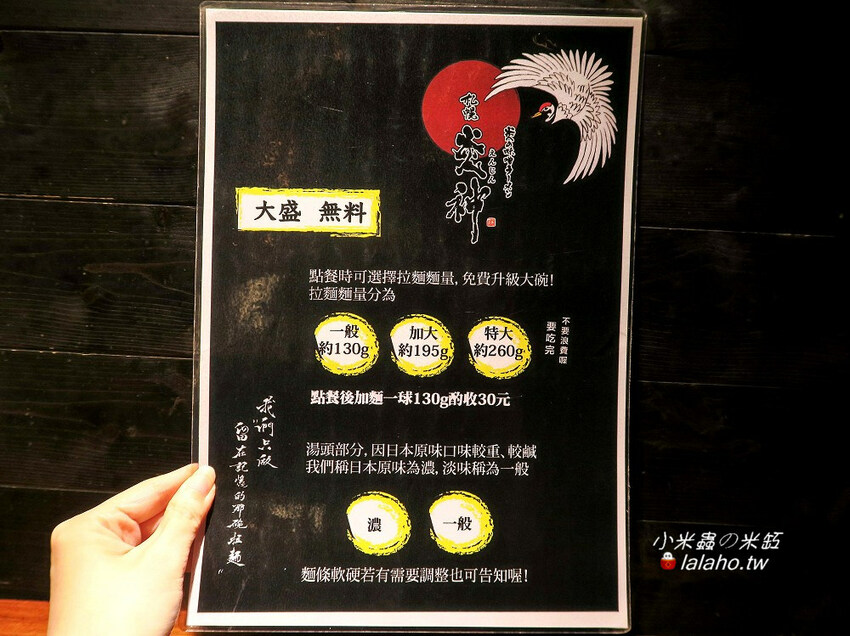 札幌
炎神
えんじん
炎の味噌ラーメン
大盛 無料
點餐時可選擇拉麵麵量,免費升級大碗!
拉麵麵量分為
一般
約130g
加大
約195g
特大
約260g
不要浪費喔
要吃完
點餐後加麵一球130g酌收30元
湯頭部分,因日本原味口味較重、較鹹
我們稱日本原味為濃,淡味稱為一般
濃
一般
麵條軟硬若有需要調整也可告知喔!
我們只做
"留在記憶的那碗拉麵"
小米蟲の米缸
lalaho.tw